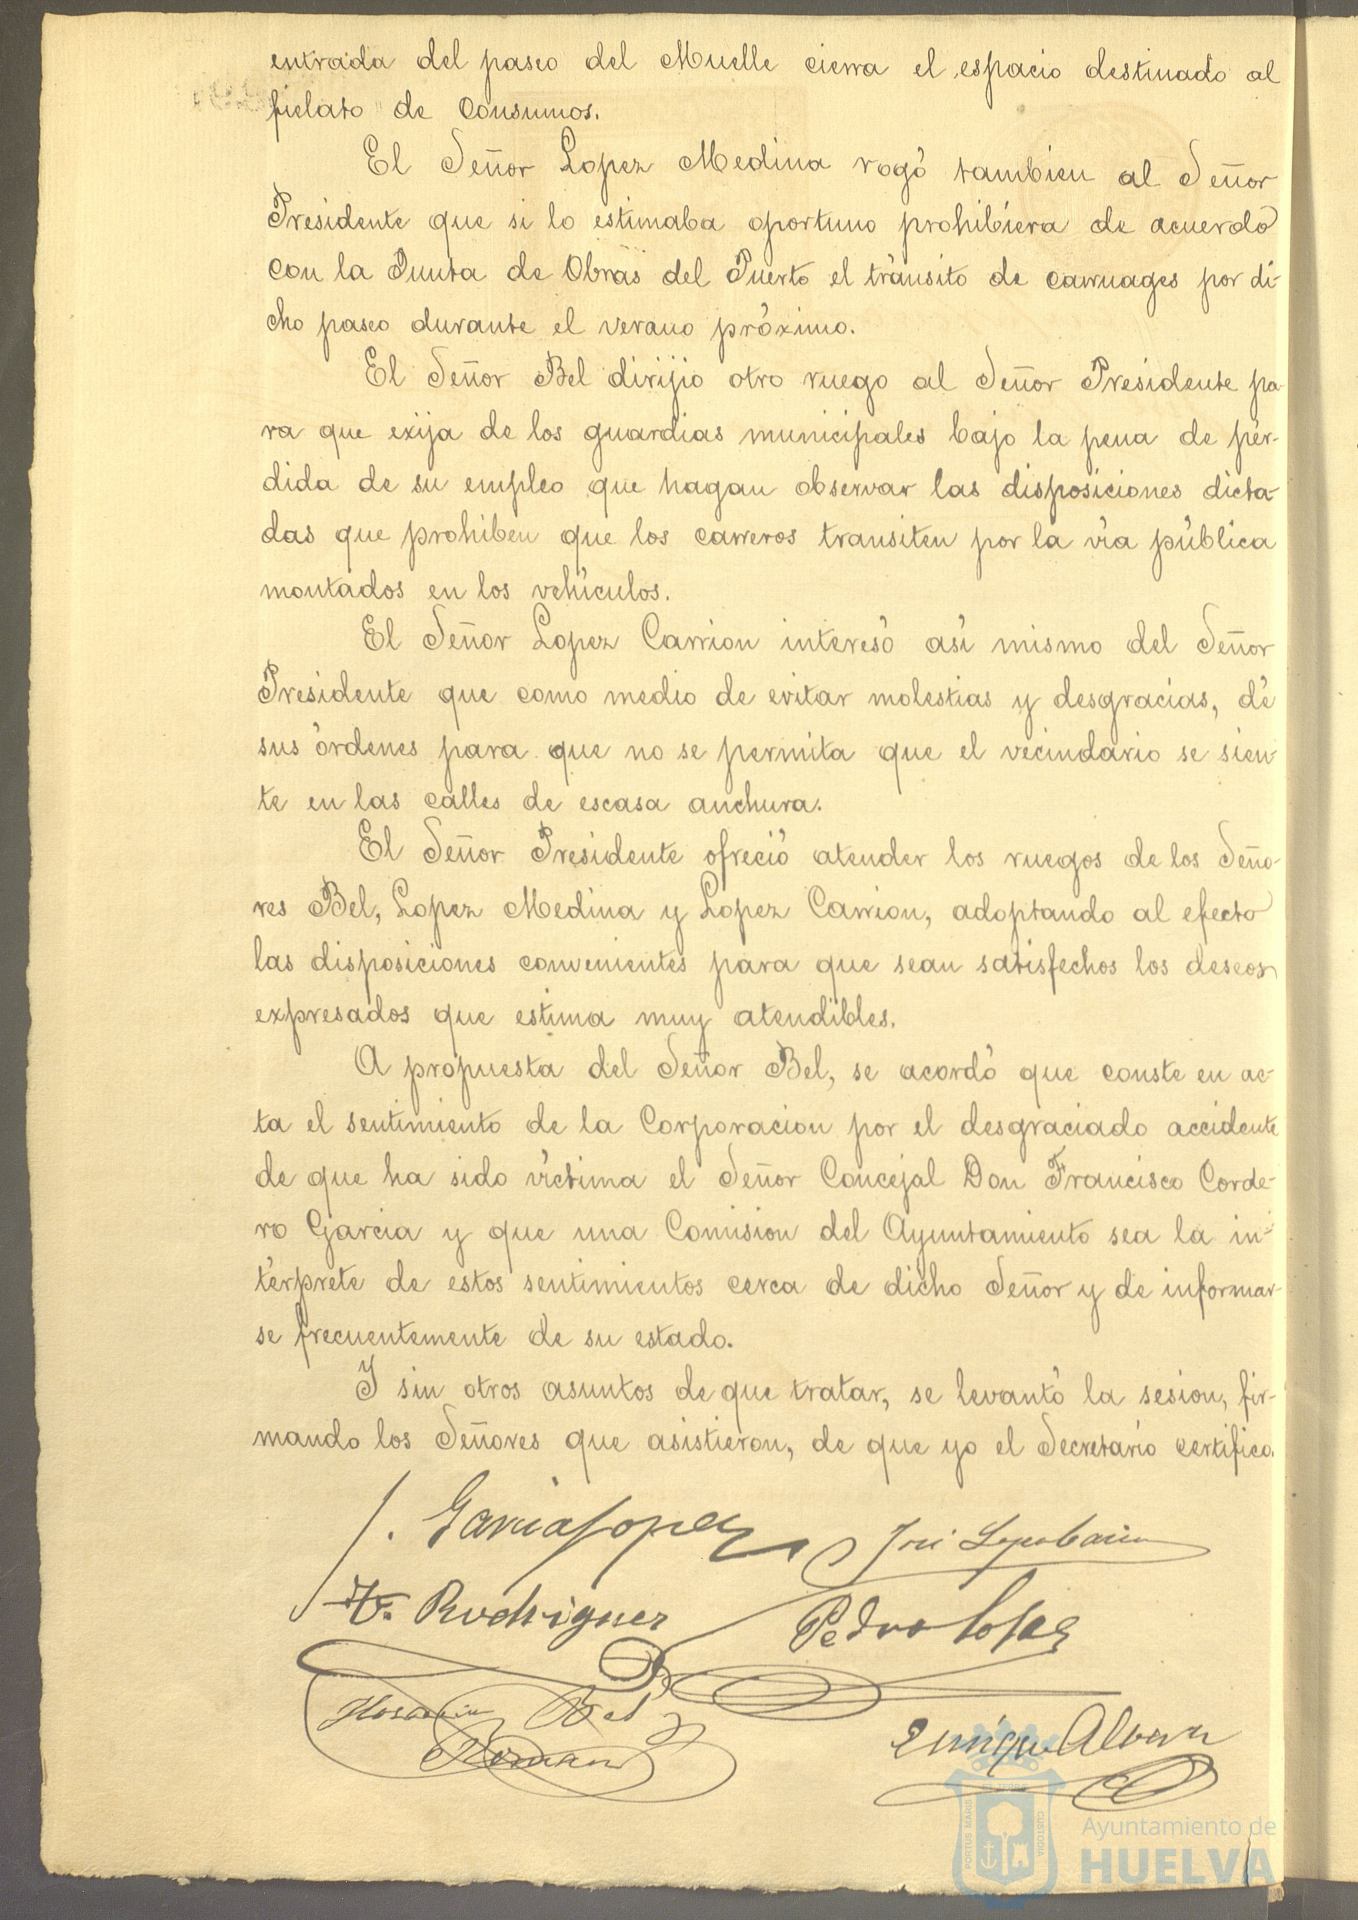 entrada del paseo del Muelle cierra el espacio destinado al
fielato de consumos.
El Señor Lopez Medina rogó tambien al Señor
Presidente que si lo estimaba oportuno prohibiera de acuerdo
con la Junta de Obras del Puerto el tránsito de carruages por di-
cho paseo durante el verano próximo.
El Señor Bel dirijio otro ruego al Señor Presidente pa-
ra que exija de los guardias municipales bajo la pena de pér-
dida de su empleo que hagan observar las disposiciones dicta-
das que prohiben que los carreros transiten por la via pública
montados en los vehículos.
El Señor Lopez Carrion interesó asi mismo del Señor
Presidente que como medio de evitar molestias y desgracias, dé
sus órdenes para que no se permita que el vecindario se sien-
te en las calles de escasa anchura.
El Señor Presidente ofreció atender los ruegos de los Seño-
res Bel, Lopez Medina y Lopez Carrion, adoptando al efecto
las disposiciones convenientes para que sean satisfechos los deseos
expresados que estima muy atendibles.
A propuesta del Señor Bel, se acordó que conste en ac-
ta el sentimiento de la Corporacion por el desgraciado accidente
de que ha sido víctima el Señor Concejal Don Francisco Corde-
ro Garcia y que una Comision del Ayuntamiento sea la in-
térprete de estos sentimientos cerca de dicho Señor y de informar-
se frecuentemente de su estado.
Y sin otros asuntos de que tratar, se levantó la sesion, fir-
mando los Señores que asistieron, de que yo el Secretario certifico.
J. Garcia Lopez José
Rodriguez Pedro
Bel
Roman
Enrique
PORTUS MARIS ET TERRE CUSTODIA
Ayuntamiento de
HUELVA